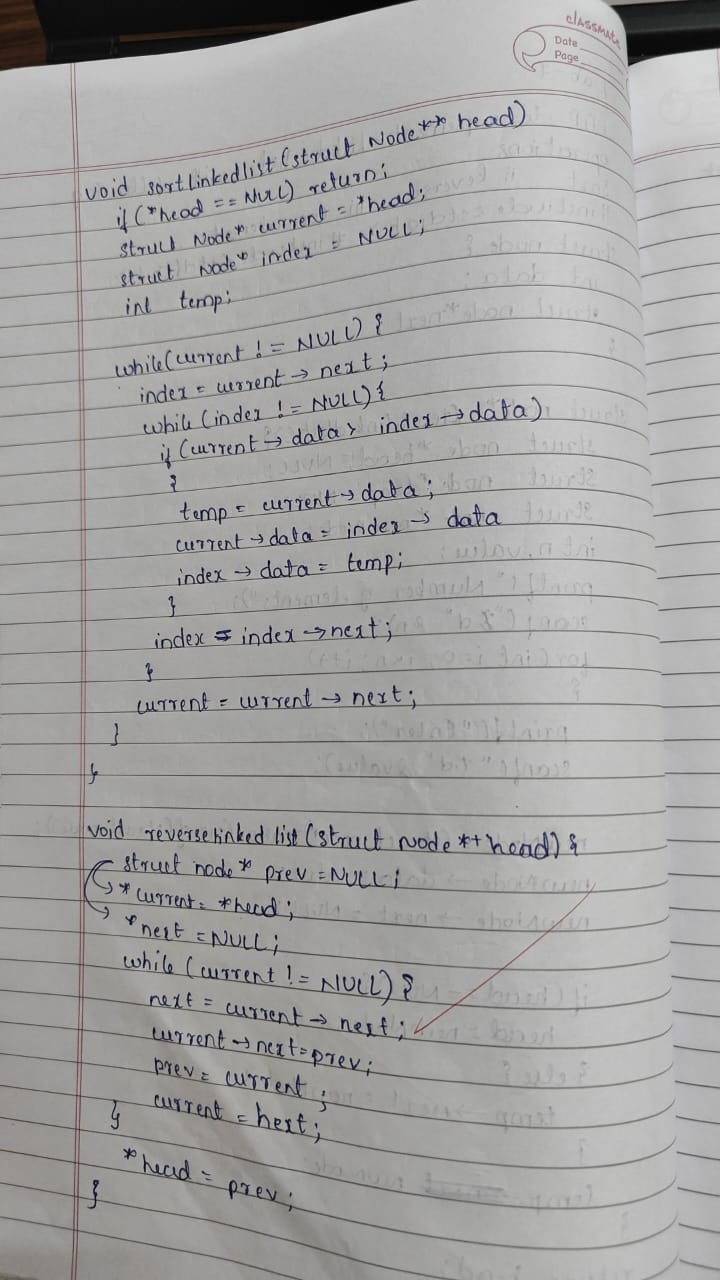 classmate
Date
Page
void sortlinkedlist (struct Node** head)
if (*head == NULL) return;
struct Node* current = *head;
struct Node* index = NULL;
int temp;
while(current != NULL) {
index = current → next;
while (index != NULL) {
if (current → data > index → data)
{
temp = current → data;
current → data = index → data
index → data = temp;
}
index = index → next;
}
current = current → next;
}
}
void reverselinked list (struct Node ** head) {
struct node * prev = NULL;
* current = *head;
* next = NULL;
while (current != NULL) {
next = current → next;
current → next = prev;
prev = current ;
current = next;
}
*head = prev;
}